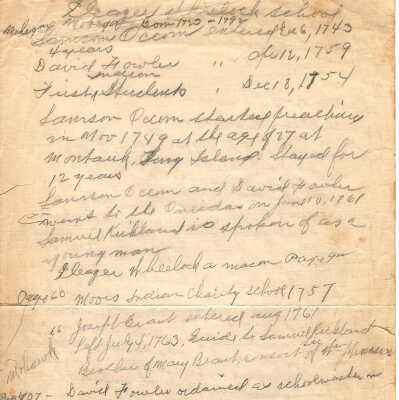 Eleazer Wheelock school
Mohegan Born 1723 - 1792
Samson Occom entered Dec 6, 1743
4 years
David Fowler " Apr 12, 1759
Indian
First Students " Dec 18, 1754
Samson Occom started preaching
in Nov 1749 at the age of 27 at
Montauk, Long Island. Stayed for
12 years
Samson Occom and David Fowler
went to the Oneidas on June 10, 1761
Samuel Kirkland is spoken of as a
young man
Eleazer Wheelock a mason Page
Page 60 Moors Indian Charity school 1757
" Joseph Brant entered Aug 1761
Mohawk left July 4, 1763, Guide to Samuel Kirkland
Brother of Mary Brant, consort of Sir Wm
107 - David Fowler ordained as schoolmaster in